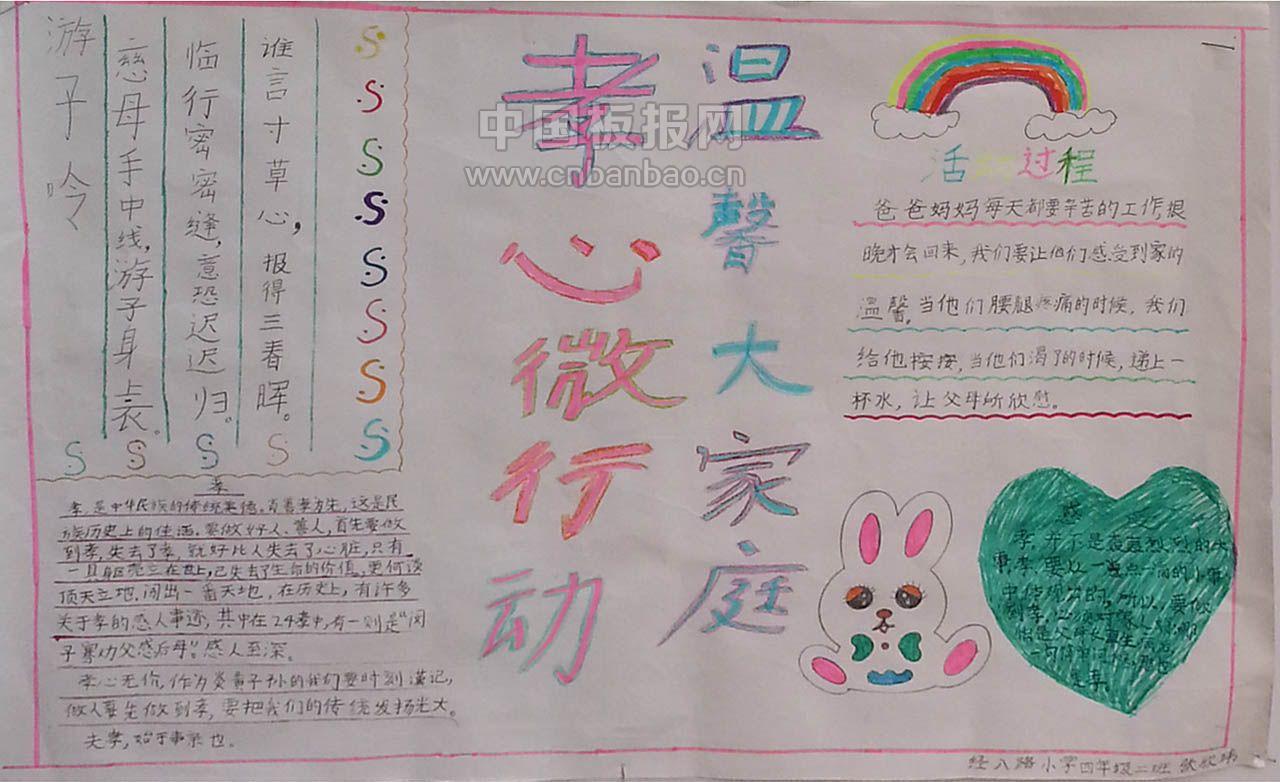 游子吟
慈母手中线,游子身上衣。
临行密密缝,意恐迟迟归。
谁言寸草心,报得三春晖。
孝心微行动
温馨大家庭
中国板报网
www.cnbanbao.cn
活动过程
爸爸妈妈每天都要辛苦的工作,很
晚才会回来,我们要让他们感受到家的
温馨,当他们腰腿疼痛的时候,我们
给他按按,当他们渴了的时候,递上一
杯水,让父母所欣慰。
孝
孝,是中华民族的传统美德。百善孝为先,这是民
族历史上的佳话,要做好人、善人,首先要做
到孝,失去了孝,就好比人失去了心脏,只有
一具躯壳立在世上,已失去了生命的价值,更何谈
顶天立地,闯出一番天地,在历史上,有许多
关于孝的感人事迹,其中在24孝中,有一则是“闵
子骞劝父感后母”。感人至深。
孝心无价,作为炎黄子孙的我们要时刻谨记,
做人要先做到孝,要把我们的传统发扬光大。
夫孝,始于事亲也。
感
孝并不是轰轰烈烈的大
事,孝要从一点一滴的小事
中体现的,所以,要做
到孝,
经八路小学四年级二班